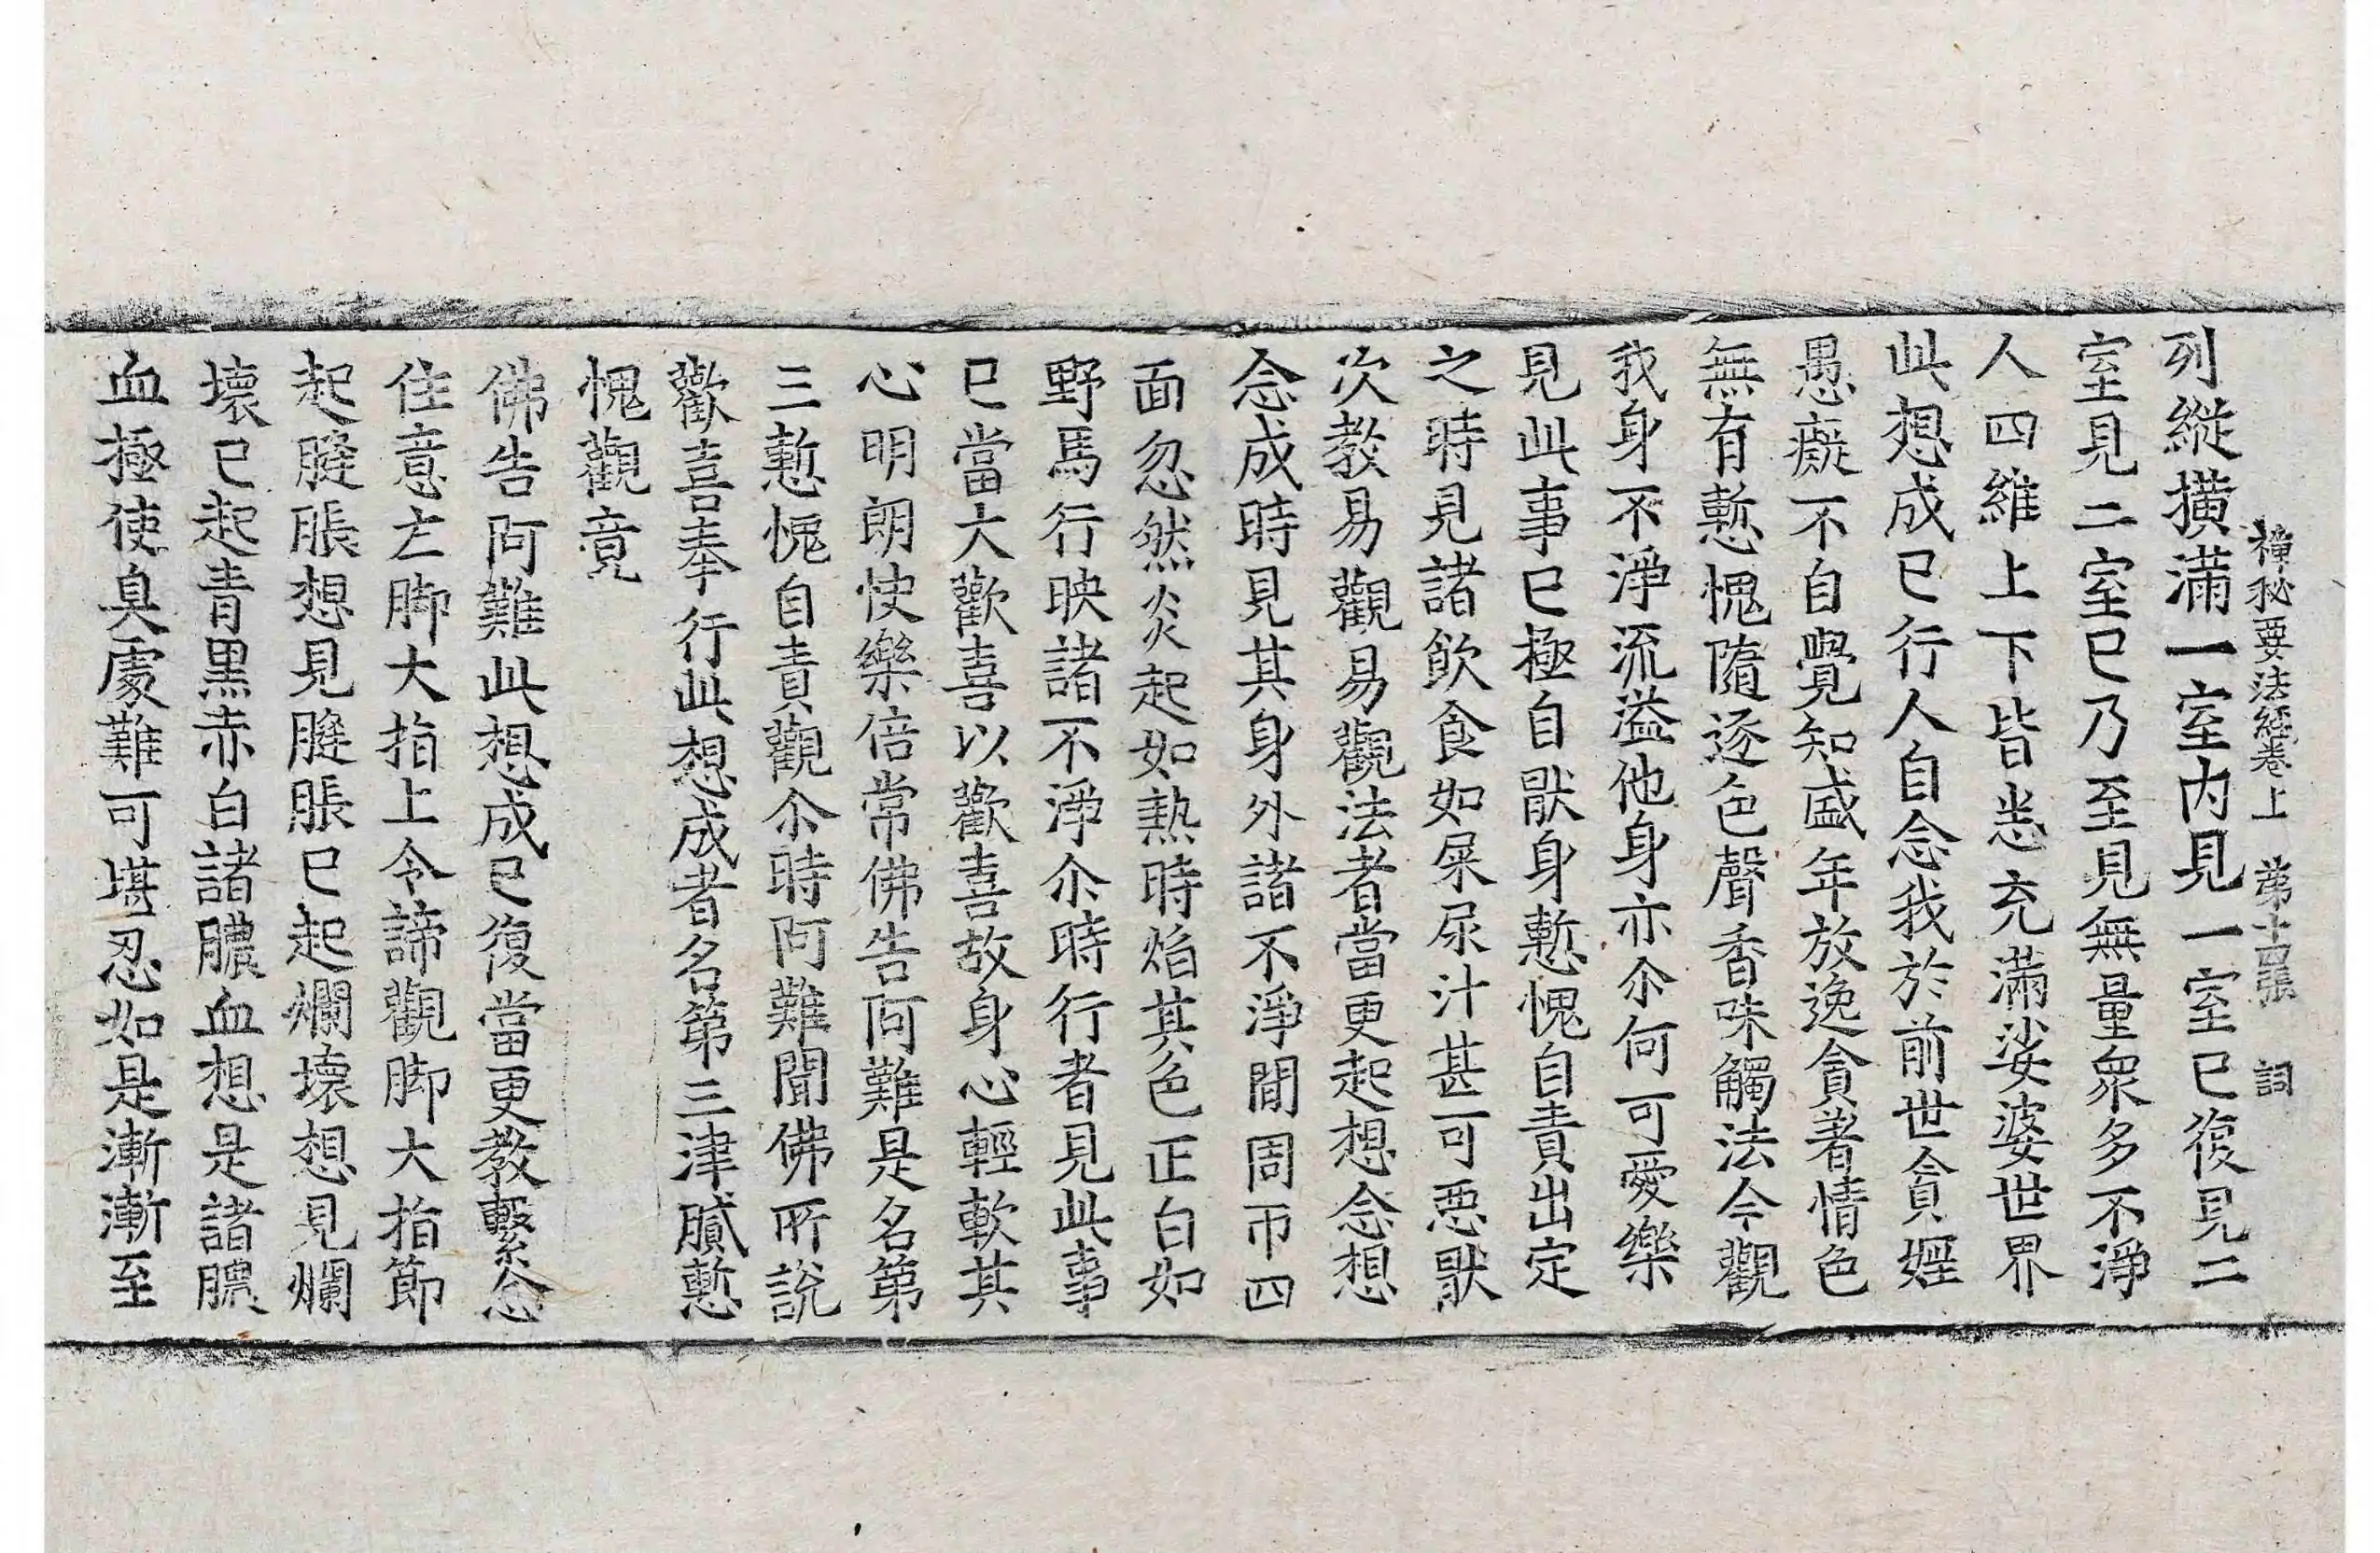 禪秘要法經卷上　第十四張　詞
列縱橫滿一室內見一室已復見二
室見二室已乃至見無量衆多不淨
人四維上下皆悉充滿娑婆世界
此想成已行人自念我於前世貪婬
愚癡不自覺知盛年放逸貪著情色
無有慙愧隨逐色聲香味觸法今觀
我身不淨流溢他身亦尒何可愛樂
見此事已極自猒身慙愧自責出定
之時見諸飮食如屎尿汁甚可惡猒
次教易觀易觀法者當更起想念想
念成時見其身外諸不淨閒周帀四
面忽然炎起如熱時焰其色正白如
野馬行映諸不淨尒時行者見此事
已當大歡喜以歡喜故身心輕軟其
心明朗快樂倍常佛告阿難是名第
三慙愧自責觀尒時阿難聞佛所說
歡喜奉行此想成者名第三津膩慙
愧觀竟
佛告阿難此想成已復當更教繫念
住意左脚大指上令諦觀脚大指節
起膖脹想見膖脹已起爛壞想見爛
壞已起青黑赤白諸膿血想是諸膿
血極使臭處難可堪忍如是漸漸至